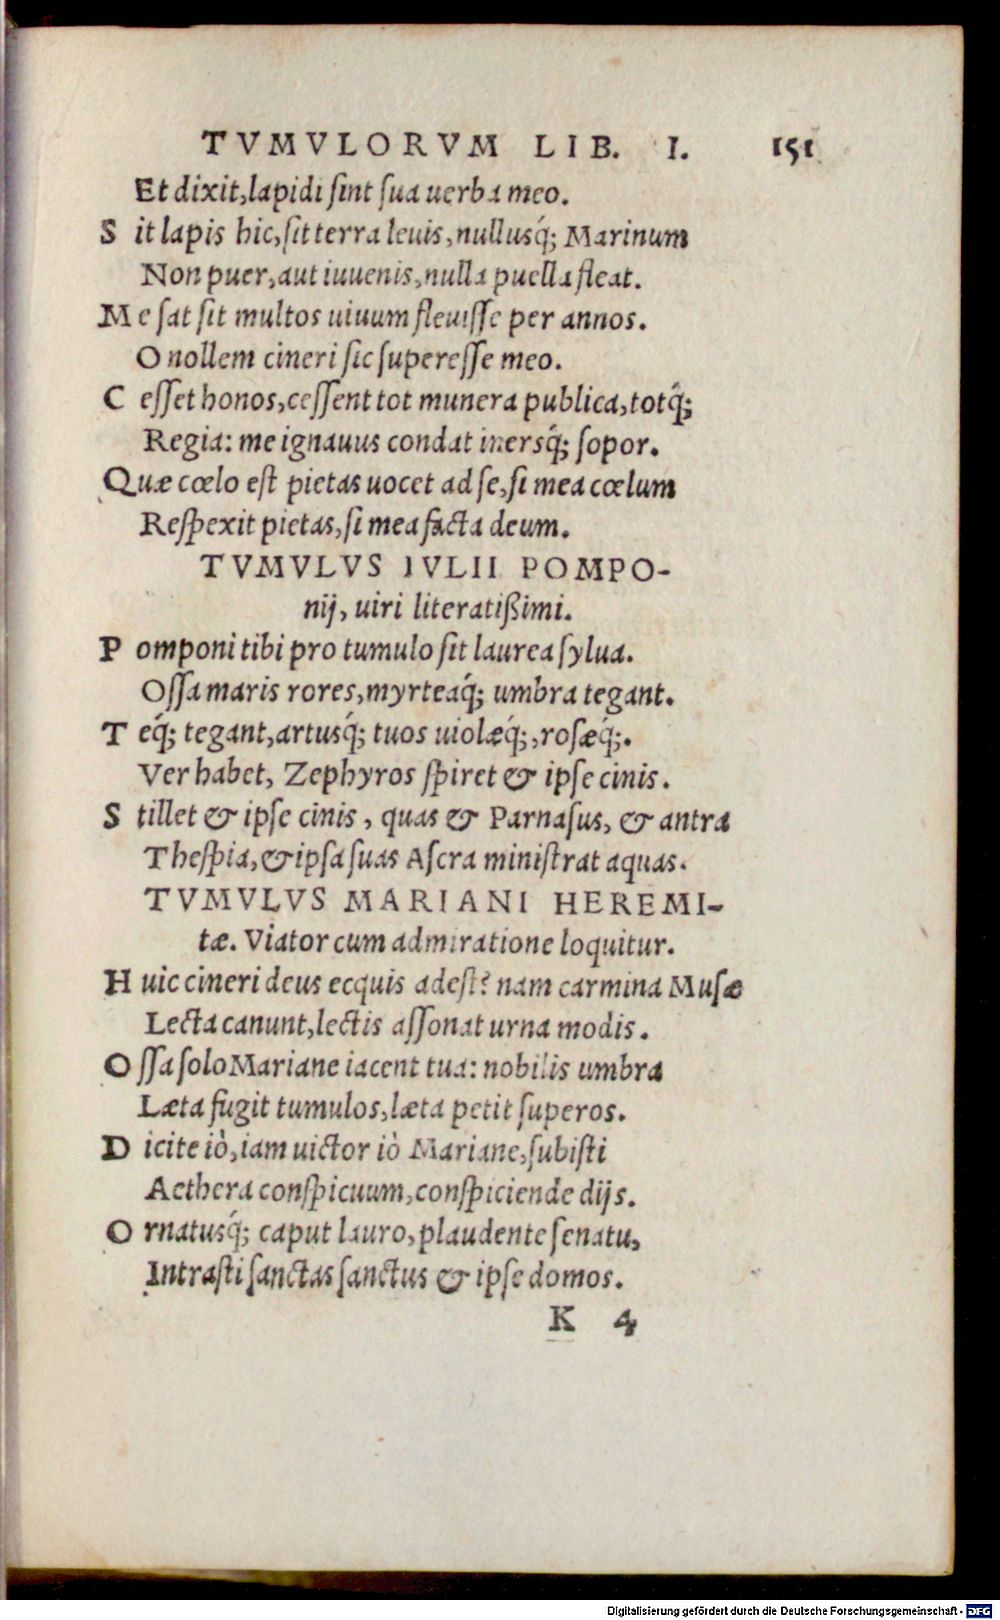 TVMVLORVM LIB. I. 151
Et dixit, lapidi sint sua uerba meo.
S it lapis hic, sit terra leuis, nullusq́; Marinum
Non puer, aut iuuenis, nulla puella fleat.
M e sat sit multos uiuum fleuisse per annos.
O nollem cineri sic superesse meo.
C esset honos, cessent tot munera publica, totq́;
Regia: me ignauus condat inersq́; sopor.
Quæ cœlo est pietas uocet ad se, si mea cœlum
Respexit pietas, si mea facta deum.
TVMVLVS IVLII POMPO-
nij, uiri literatißimi.
P omponi tibi pro tumulo sit laurea sylua.
Ossa maris rores, myrteaq́; umbra tegant.
T eq́; tegant, artusq́; tuos uiolæq́;, rosæq́;.
Ver habet, Zephyros spiret & ipse cinis.
S tillet & ipse cinis, quas & Parnasus, & antra
Thespia, & ipsa suas Ascra ministrat aquas.
TVMVLVS MARIANI HEREMI-
tæ. Viator cum admiratione loquitur.
H uic cineri deus ecquis adest? nam carmina Musæ
Lecta canunt, lectis assonat urna modis.
O ssa solo Mariane iacent tua: nobilis umbra
Læta fugit tumulos, læta petit superos.
D icite iò, iam uictor iò Mariane, subisti
Aethera conspicuum, conspiciende dijs.
O rnatusq́; caput lauro, plaudente senatu,
Intrasti sanctas sanctus & ipse domos.
K 4
Digitalisierung gefördert durch die Deutsche Forschungsgemeinschaft - DFG